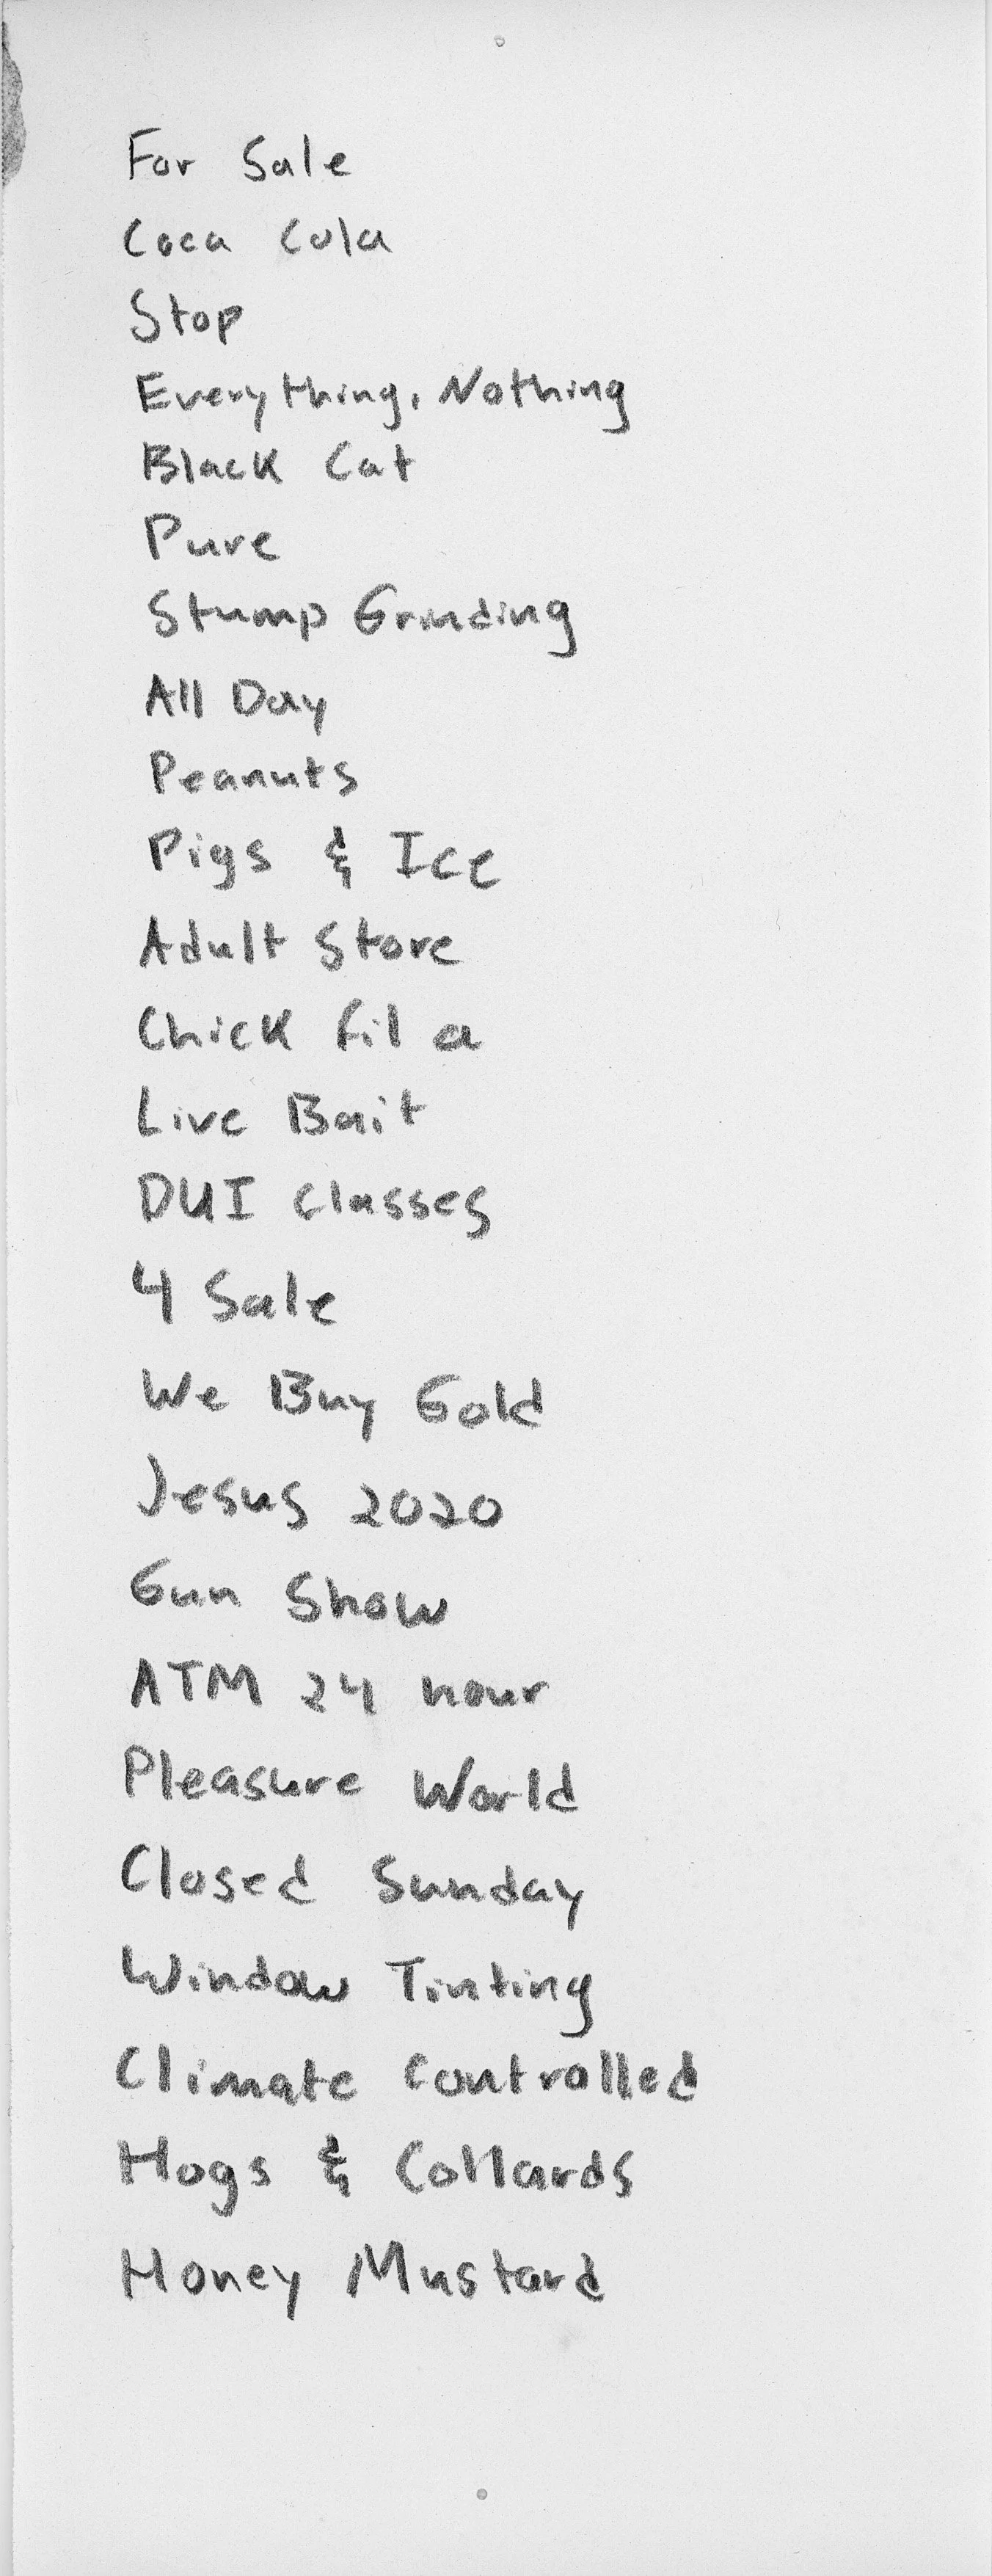 For Sale
Coca Cola
Stop
Everything, Nothing
Black Cat
Pure
Stump Grinding
All Day
Peanuts
Pigs & Ice
Adult Store
Chick fil a
Live Bait
DUI Classes
4 Sale
We Buy Gold
Jesus 2020
Gun Show
ATM 24 hour
Pleasure World
Closed Sunday
Window Tinting
Climate Controlled
Hogs & Collards
Honey Mustard